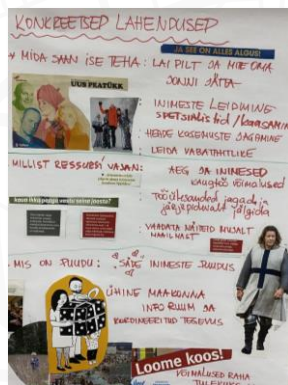 KONKREETSED LAHENDUSED
JA SEE ON ALLES ALGUS!
MIDA SAAN ISE TEHA: LAI PILT JA MITTE OMA
JONNI JÄTTA
UUS PEATÜKK
: INIMESTE LEIDMINE
SPETSIALISTID /
: HEADE KOGEMUSTE JAGAMINE
: LEIDA VABATAHTLIKE
MILLIST RESSURSI VAJAN:
AEG JA INIMESED
KAUGTÖÖ VÕIMALUSED
TÖÖÜLESANDED JAGADA JA
JÄRJEPIDEVALT JÄLGIDA
kaua ikka peaga vastu seina joosta?
: VAADATA NÄITEID MUJALT
MAAILMAST
MIS ON PUUDU: "SÄDE" INIMESTE PUUDUS
ÜHINE MAAKONNA
INFORUUM JA
KOORDINEERITUD TEGEVUS
Loome koos!
VÕIMALUSED RAHA